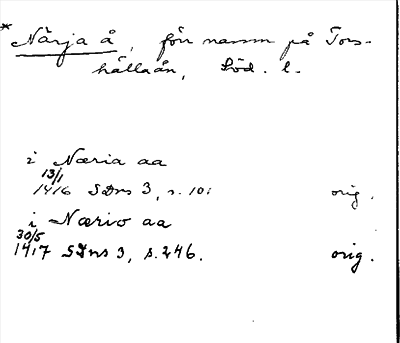 * Närja å, förr namn på Tors-
hällaån, Söd. l.
i Næria aa
13/1
1416 SDns 3, s. 10: orig.
i Nærio aa
30/5
1417 SDns 3, s. 246. orig.